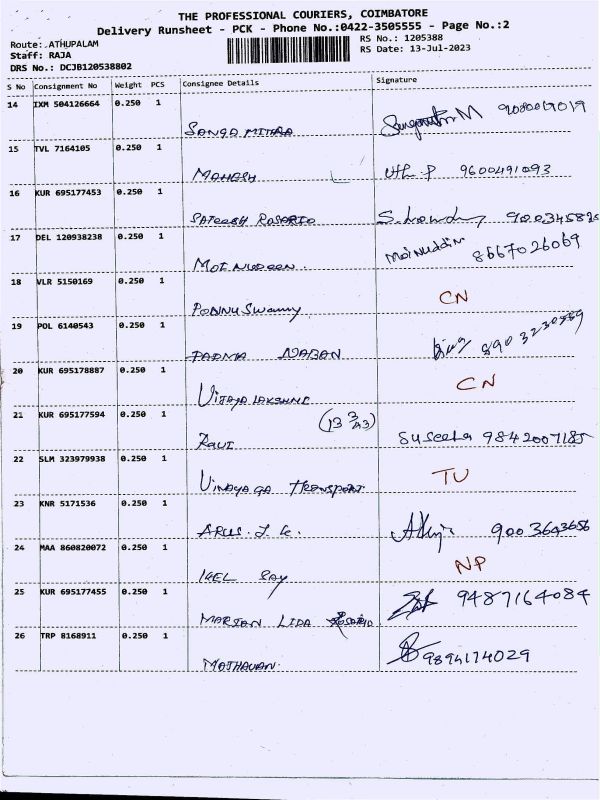 THE PROFESSIONAL COURIERS, COIMBATORE
Delivery Runsheet - PCK - Phone No.:0422-3505555 - Page No.:2
Route: ATHUPALAM
RS No.: 1205388
Staff: RAJA
RS Date: 13-Jul-2023
DRS No.: DCJB120538802
S No Consignment No Weight PCS Consignee Details Signature
14 IXM 504126664 0.250 1
SANGA MITHRA
15 TVL 7164105 0.250 1
MAHESH 9600491093
16 KUR 695177453 0.250 1
SATEESH ROSARIO
17 DEL 120938238 0.250 1
MOINUDEEN Moinuddin 8667026069
18 VLR 5150169 0.250 1
PONNUSwamy CN
19 POL 6140543 0.250 1
PADMA
20 KUR 695178887 0.250 1
VIJAYALAKSHMI CN
21 KUR 695177594 0.250 1
RAVI Suseela 9842007185
22 SLM 323979938 0.250 1
VINAYAGA TRANSPORT TU
23 KNR 5171536 0.250 1
9003643656
24 MAA 860820072 0.250 1
NP
25 KUR 695177455 0.250 1
MARIAN LIDA ROSARIO 9487164084
26 TRP 8168911 0.250 1
MATHAVAN 9894174029